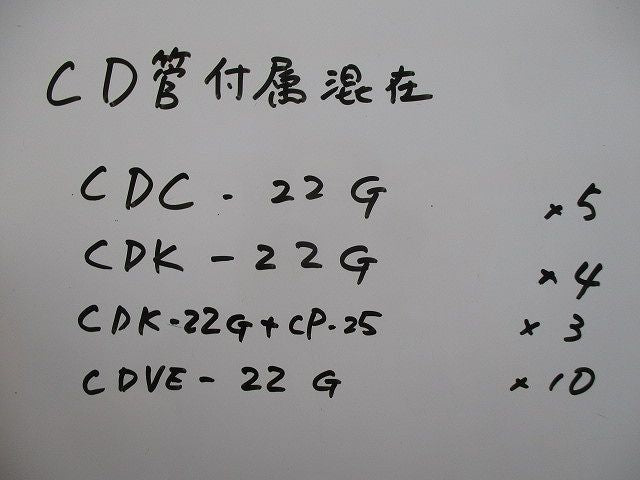 CD管付属混在
CDC-22G ×5
CDK-22G ×4
CDK-22G+CP-25 ×3
CDVE-22G ×10